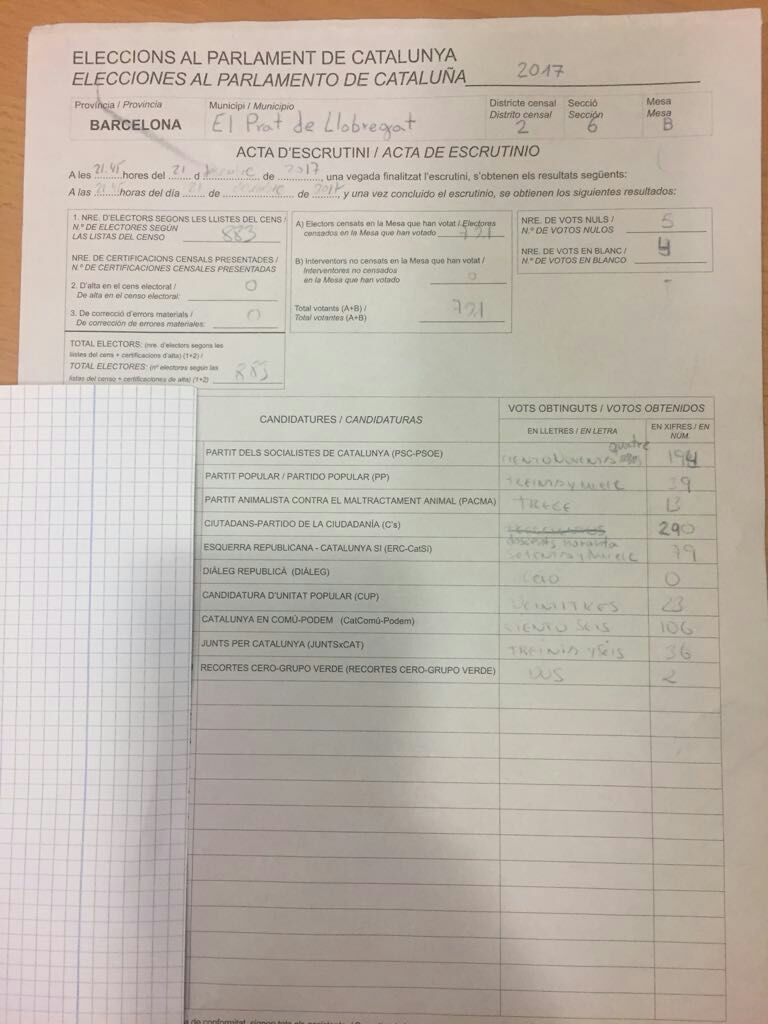 ELECCIONS AL PARLAMENT DE CATALUNYA
ELECCIONES AL PARLAMENTO DE CATALUÑA 2017
Província / Provincia
BARCELONA
Municipi / Municipio
El Prat de Llobregat
Districte censal
Distrito censal
2
Secció
Sección
6
Mesa
Mesa
B
ACTA D'ESCRUTINI / ACTA DE ESCRUTINIO
A les 21.45 hores del 21 d de 2017, una vegada finalitzat l'escrutini, s'obtenen els resultats següents:
A las 21.45 horas del día 21 de de 2017 y una vez concluido el escrutinio, se obtienen los siguientes resultados:
1. NRE. D'ELECTORS SEGONS LES LLISTES DEL CENS /
N.º DE ELECTORES SEGÚN
LAS LISTAS DEL CENSO 883
NRE. DE CERTIFICACIONS CENSALS PRESENTADES /
N.º DE CERTIFICACIONES CENSALES PRESENTADAS
2. D'alta en el cens electoral /
De alta en el censo electoral: 0
3. De correcció d'errors materials /
De corrección de errores materiales: 0
TOTAL ELECTORS: (nre. d'electors segons les
llistes del cens + certificacions d'alta) (1+2) /
TOTAL ELECTORES: (nº electores según las
listas del censo + certificaciones de alta) (1+2)
A) Electors censats en la Mesa que han votat / Electores
censados en la Mesa que han votado 791
B) Interventors no censats en la Mesa que han votat /
Interventores no censados
en la Mesa que han votado 0
Total votants (A+B) /
Total votantes (A+B) 791
NRE. DE VOTS NULS /
N.º DE VOTOS NULOS 5
NRE. DE VOTS EN BLANC /
N.º DE VOTOS EN BLANCO 4
CANDIDATURES / CANDIDATURAS
VOTS OBTINGUTS / VOTOS OBTENIDOS
EN LLETRES / EN LETRA
EN XIFRES / EN
NÚM.
PARTIT DELS SOCIALISTES DE CATALUNYA (PSC-PSOE) quatre 194
PARTIT POPULAR / PARTIDO POPULAR (PP) 39
PARTIT ANIMALISTA CONTRA EL MALTRACTAMENT ANIMAL (PACMA) TRECE 13
CIUTADANS-PARTIDO DE LA CIUDADANÍA (C's) 290
ESQUERRA REPUBLICANA - CATALUNYA SI (ERC-CatSí) 79
DIÀLEG REPUBLICÀ (DIÀLEG) 0
CANDIDATURA D'UNITAT POPULAR (CUP) VEINTITRES 23
CATALUNYA EN COMÚ-PODEM (CatComú-Podem) CIENTO SEIS 106
JUNTS PER CATALUNYA (JUNTSxCAT) 36
RECORTES CERO-GRUPO VERDE (RECORTES CERO-GRUPO VERDE) DOS 2